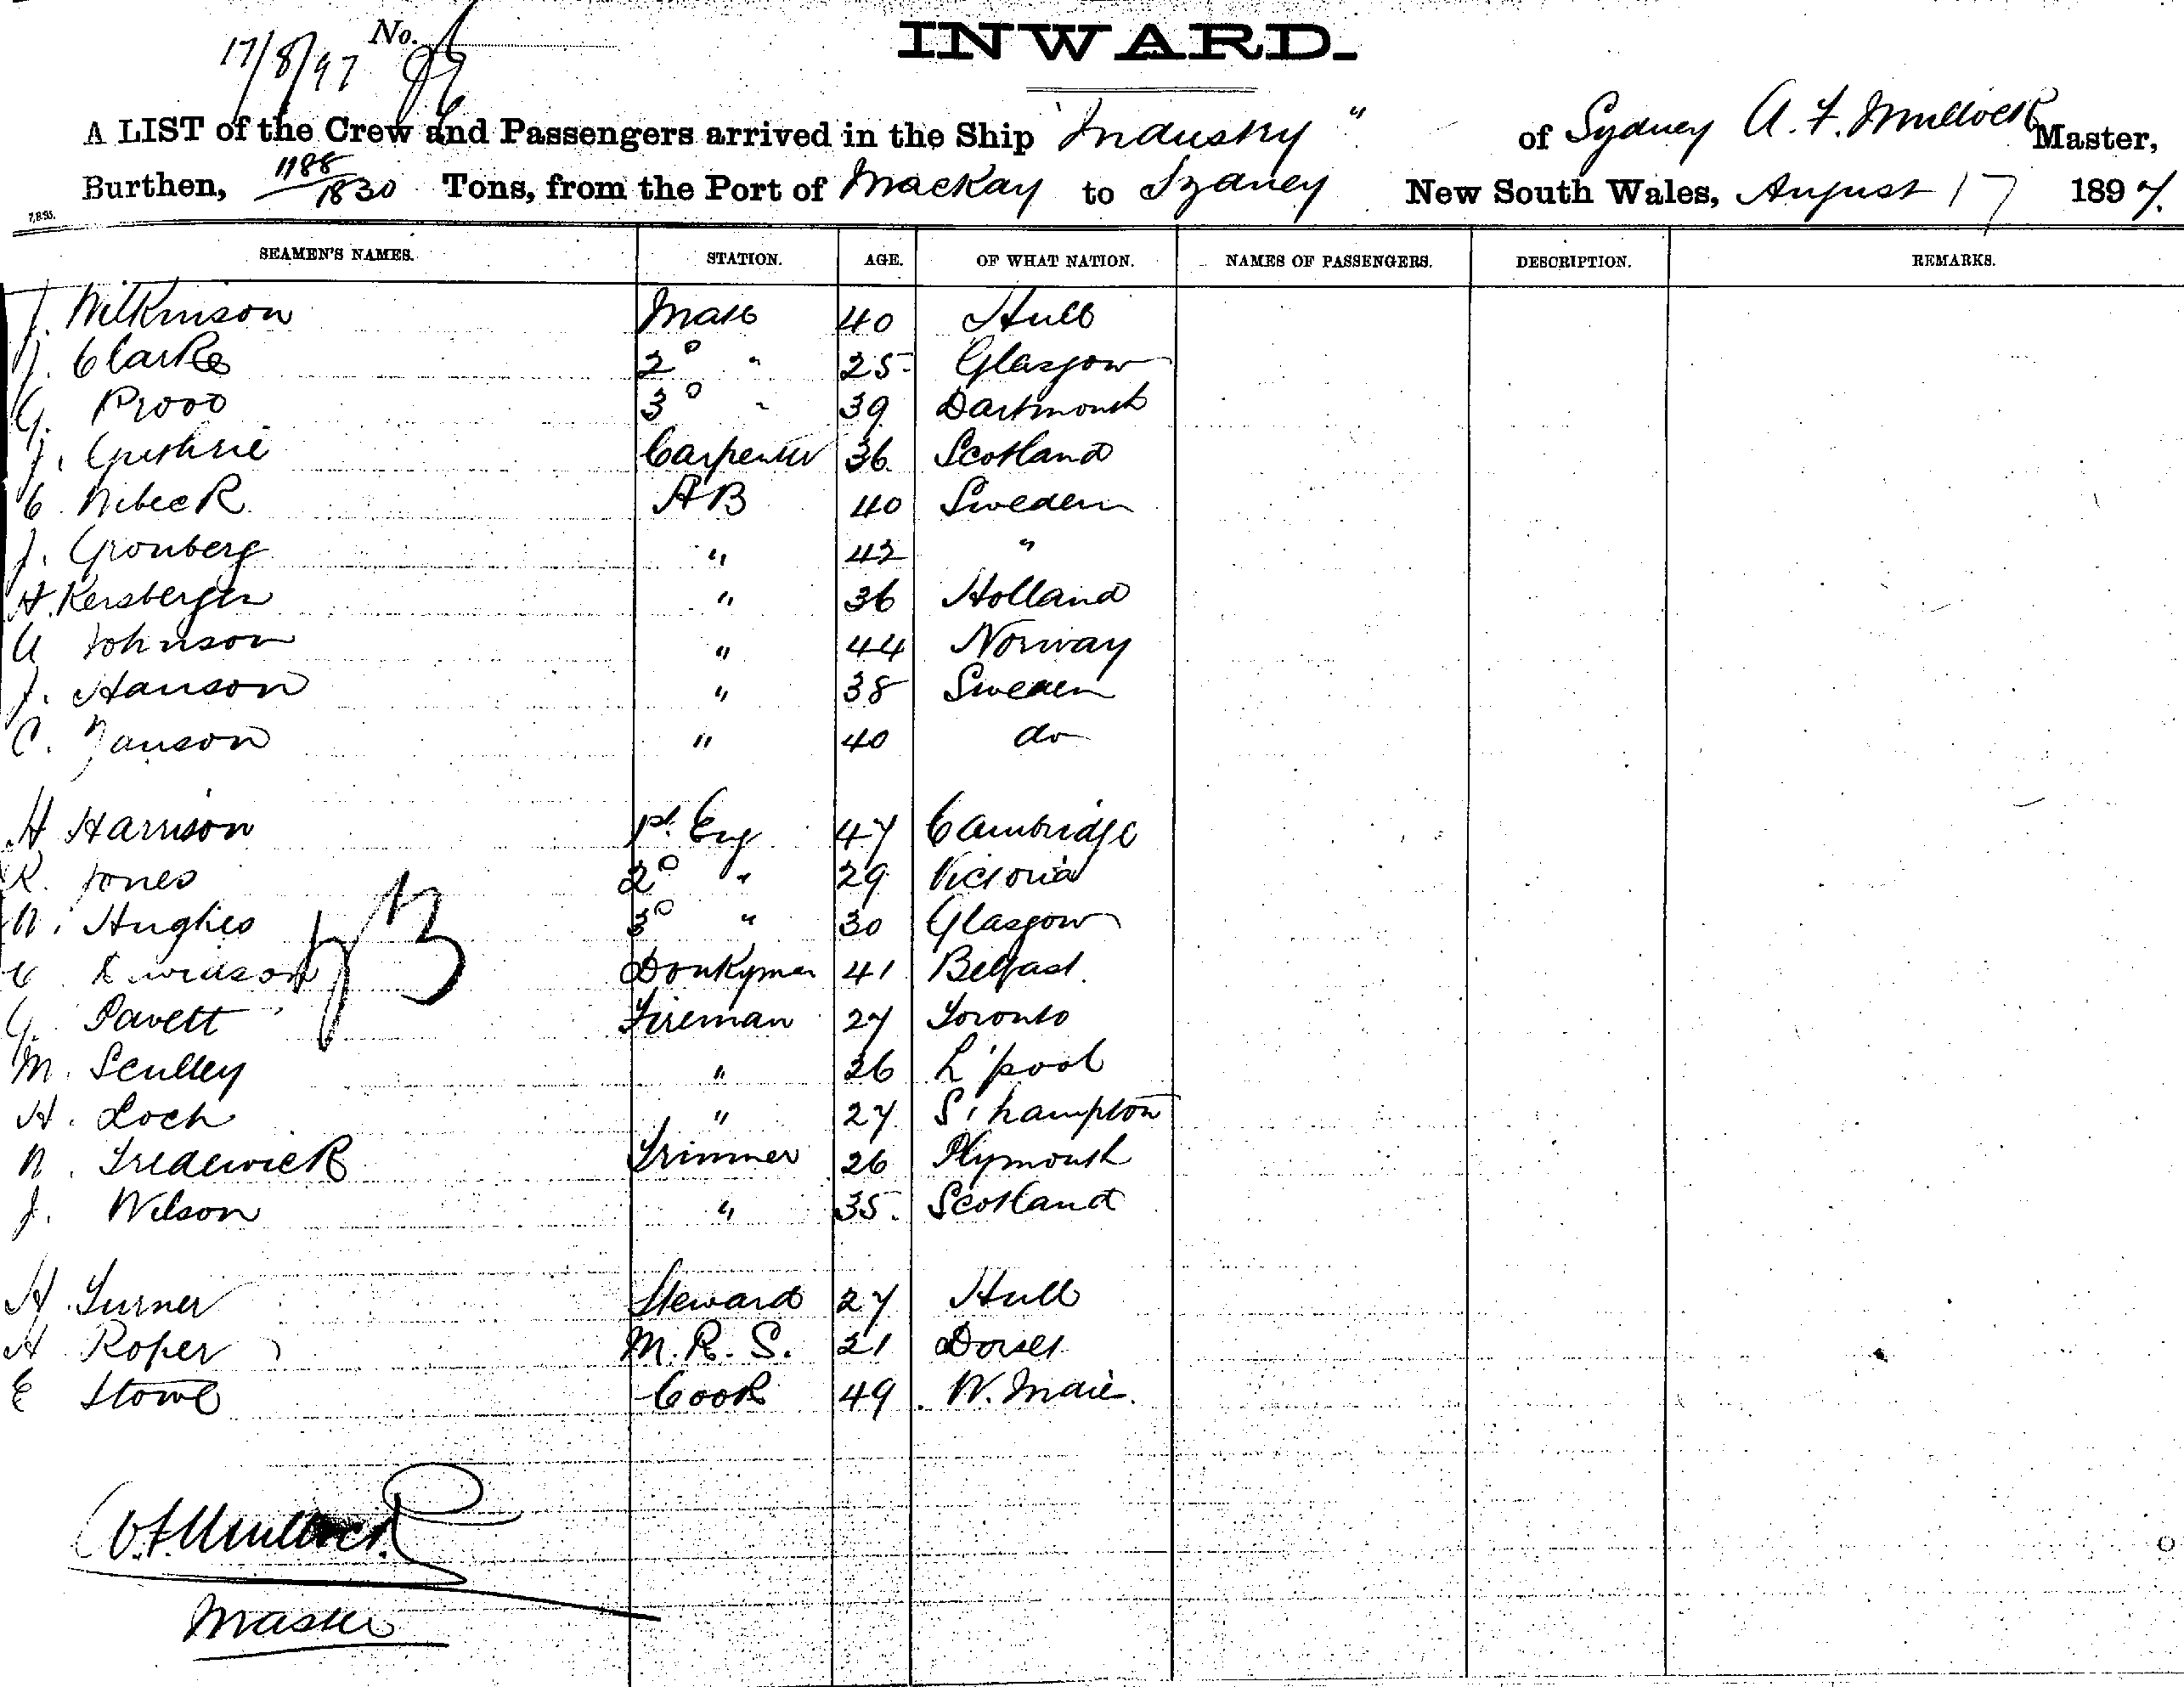 17/8/97 No.
INWARD.
A LIST of the Crew and Passengers arrived in the Ship "Industry" of Sydney A. F. Mullock Master,
Burthen, 1188/1830 Tons, from the Port of Mackay to Sydney New South Wales, August 17 1897.
7.8.95.
SEAMEN'S NAMES. STATION. AGE. OF WHAT NATION. NAMES OF PASSENGERS. DESCRIPTION. REMARKS.
J. Wilkinson Mate 40 Hull
J. Clarke 2° " 25 Glasgow
G. Prood 3° " 39 Dartmouth
J. Guthrie Carpenter 36 Scotland
C. Nibeck AB 40 Sweden
J. Gronberg " 42 "
H. Kersbergen " 36 Holland
A Johnson " 44 Norway
J. Hanson " 38 Sweden
C. Janson " 40 do
H Harrison 1st Eng 47 Cambridge
R. Jones 2° " 29 Victoria
W. Hughes 3° " 30 Glasgow
Donkyman 41 Belfast.
G. Pavett Fireman 27 Toronto
M. Sculley " 26 L'pool
H. Loch " 27 S'hampton
W. Frederick Trimmer 26 Plymouth
J. Wilson " 35. Scotland
H. Turner Steward 27 Hull
H Roper M.R.S. 21 Dorset
E Stowe Cook 49 W. Indie.
A. F. Mullock
Master